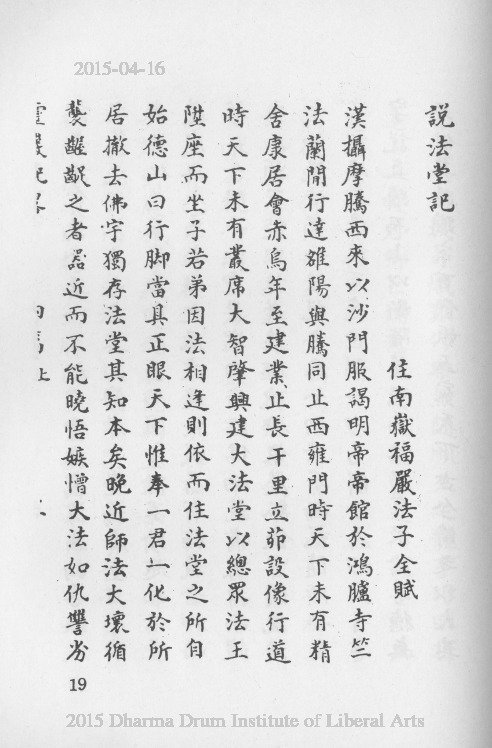 2015-04-16
說法堂記
住南嶽福嚴法子全賦
漢攝摩騰西來以沙門服謁明帝帝館於鴻臚寺竺
法蘭間行達雒陽與騰同止西雍門時天下未有精
舍康居會赤烏年至建業止長干里立茆設像行道
時天下未有叢席大智肇興建大法堂以總眾法王
陞座而坐子若弟因法相逢則依而住法堂之所自
始德山曰行脚當具正眼天下惟奉一君一化於所
居撤去佛宇獨存法堂其知本矣晚近師法大壞循
襲齷齪之者器近而不能曉悟嫉憎大法如仇讐劣
靈巖記畧
19
2015 Dharma Drum Institute of Liberal Arts